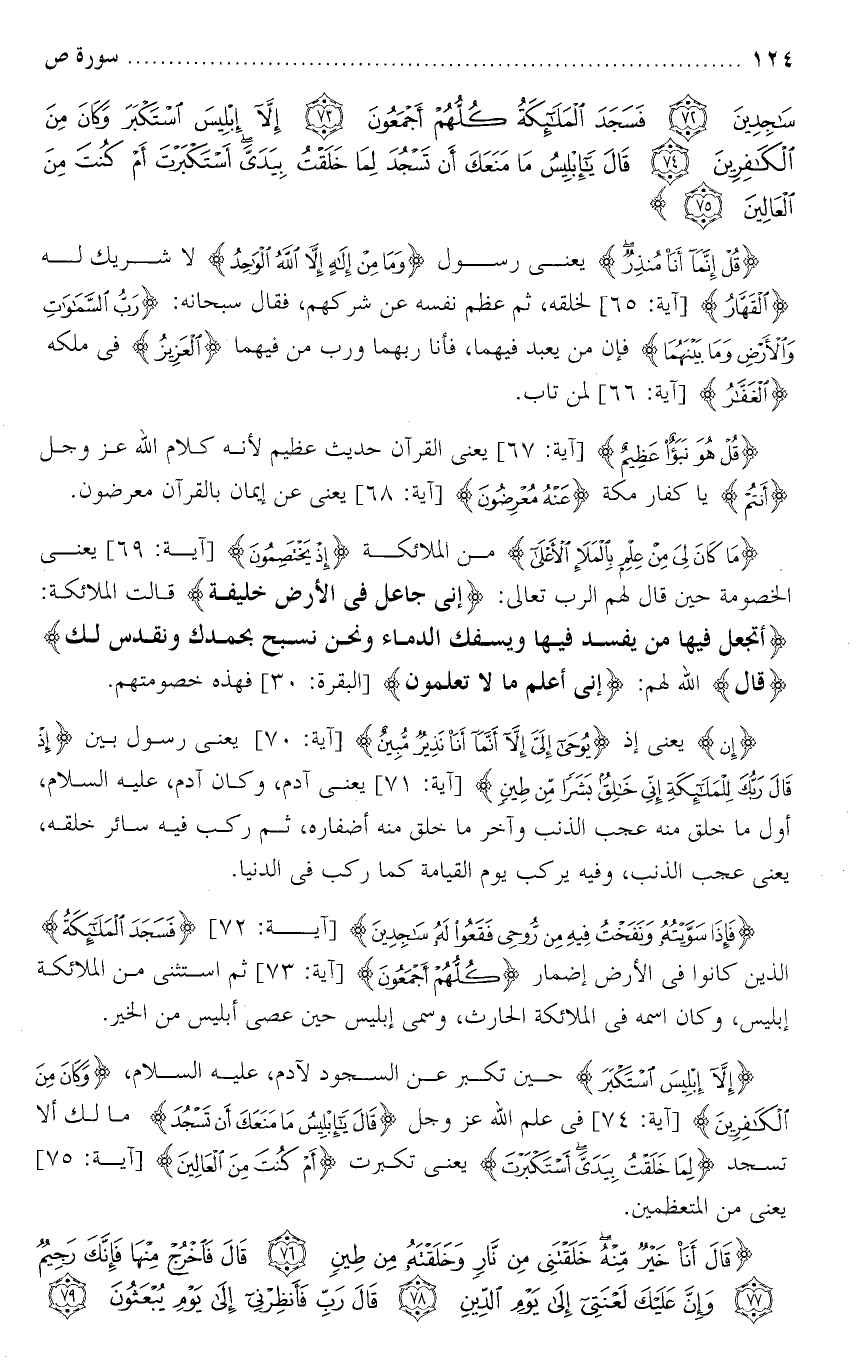 ١٢٤ ........................................................................ سورة ص
سَٰجِدِينَ ٧٢ فَسَجَدَ ٱلْمَلَٰٓئِكَةُ كُلُّهُمْ أَجْمَعُونَ ٧٣ إِلَّآ إِبْلِيسَ ٱسْتَكْبَرَ وَكَانَ مِنَ
ٱلْكَٰفِرِينَ ٧٤ قَالَ يَٰٓإِبْلِيسُ مَا مَنَعَكَ أَن تَسْجُدَ لِمَا خَلَقْتُ بِيَدَىَّ ۖ أَسْتَكْبَرْتَ أَمْ كُنتَ مِنَ
ٱلْعَالِينَ ٧٥ ﴾
﴿قُلْ إِنَّمَآ أَنَا۠ مُنذِرٌ ۖ﴾ يعنى رسول ﴿وَمَا مِنْ إِلَٰهٍ إِلَّا ٱللَّهُ ٱلْوَٰحِدُ﴾ لا شريك له
﴿ٱلْقَهَّارُ﴾ [آية: ٦٥] لخلقه، ثم عظم نفسه عن شركهم، فقال سبحانه: ﴿رَبُّ ٱلسَّمَٰوَٰتِ
وَٱلْأَرْضِ وَمَا بَيْنَهُمَا﴾ فإن من يعبد فيهما، فأنا ربهما ورب من فيهما ﴿ٱلْعَزِيزُ﴾ فى ملكه
﴿ٱلْغَفَّٰرُ﴾ [آية: ٦٦] لمن تاب.
﴿قُلْ هُوَ نَبَؤٌا۟ عَظِيمٌ﴾ [آية: ٦٧] يعنى القرآن حديث عظيم لأنه كلام الله عز وجل
﴿أَنتُمْ﴾ يا كفار مكة ﴿عَنْهُ مُعْرِضُونَ﴾ [آية: ٦٨] يعنى عن إيمان بالقرآن معرضون.
﴿مَا كَانَ لِىَ مِنْ عِلْمٍۭ بِٱلْمَلَإِ ٱلْأَعْلَىٰٓ﴾ من الملائكة ﴿إِذْ يَخْتَصِمُونَ﴾ [آية: ٦٩] يعنى
الخصومة حين قال لهم الرب تعالى: ﴿إنى جاعل فى الأرض خليفة﴾ قالت الملائكة:
﴿أتجعل فيها من يفسد فيها ويسفك الدماء ونحن نسبح بحمدك ونقدس لك﴾
﴿قال﴾ الله لهم: ﴿إنى أعلم ما لا تعلمون﴾ [البقرة: ٣٠] فهذه خصومتهم.
﴿إِن﴾ يعنى إذ ﴿يُوحَىٰٓ إِلَىَّ إِلَّآ أَنَّمَآ أَنَا۠ نَذِيرٌ مُّبِينٌ﴾ [آية: ٧٠] يعنى رسول بين ﴿إِذْ
قَالَ رَبُّكَ لِلْمَلَٰٓئِكَةِ إِنِّى خَٰلِقٌۢ بَشَرًا مِّن طِينٍ﴾ [آية: ٧١] يعنى آدم، وكان آدم، عليه السلام،
أول ما خلق منه عجب الذنب وآخر ما خلق منه أضفاره، ثم ركب فيه سائر خلقه،
يعنى عجب الذنب، وفيه يركب يوم القيامة كما ركب فى الدنيا.
﴿فَإِذَا سَوَّيْتُهُۥ وَنَفَخْتُ فِيهِ مِن رُّوحِى فَقَعُوا۟ لَهُۥ سَٰجِدِينَ﴾ [آية: ٧٢] ﴿فَسَجَدَ ٱلْمَلَٰٓئِكَةُ﴾
الذين كانوا فى الأرض إضمار ﴿كُلُّهُمْ أَجْمَعُونَ﴾ [آية: ٧٣] ثم استثنى من الملائكة
إبليس، وكان اسمه فى الملائكة الحارث، وسمى إبليس حين عصى أبليس من الخير.
﴿إِلَّآ إِبْلِيسَ ٱسْتَكْبَرَ﴾ حين تكبر عن السجود لآدم، عليه السلام، ﴿وَكَانَ مِنَ
ٱلْكَٰفِرِينَ﴾ [آية: ٧٤] فى علم الله عز وجل ﴿قَالَ يَٰٓإِبْلِيسُ مَا مَنَعَكَ أَن تَسْجُدَ﴾ ما لك ألا
تسجد ﴿لِمَا خَلَقْتُ بِيَدَىَّ ۖ أَسْتَكْبَرْتَ﴾ يعنى تكبرت ﴿أَمْ كُنتَ مِنَ ٱلْعَالِينَ﴾ [آية: ٧٥]
يعنى من المتعظمين.
﴿قَالَ أَنَا۠ خَيْرٌ مِّنْهُ ۖ خَلَقْتَنِى مِن نَّارٍ وَخَلَقْتَهُۥ مِن طِينٍ ٧٦ قَالَ فَٱخْرُجْ مِنْهَا فَإِنَّكَ رَجِيمٌ
٧٧ وَإِنَّ عَلَيْكَ لَعْنَتِىٓ إِلَىٰ يَوْمِ ٱلدِّينِ ٧٨ قَالَ رَبِّ فَأَنظِرْنِىٓ إِلَىٰ يَوْمِ يُبْعَثُونَ ٧٩